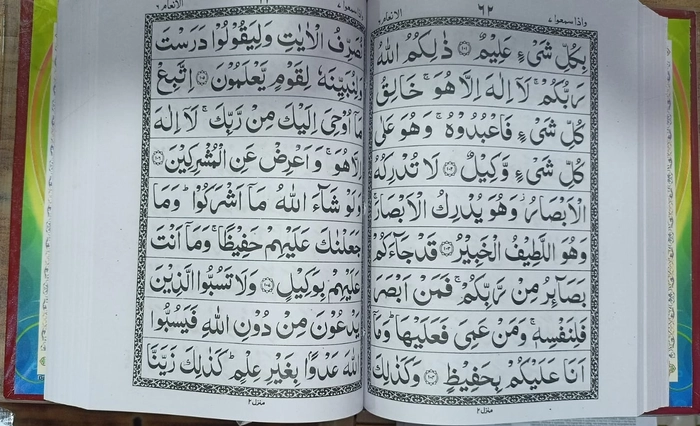 واذا سمعوا ٧
٦٢
الانعام ٦
بِكُلِّ شَىْءٍ عَلِيْمٌ ۝ ذٰلِكُمُ اللّٰهُ
رَبُّكُمْ ۚ لَاۤ اِلٰهَ اِلَّا هُوَ ۚ خَالِقُ
كُلِّ شَىْءٍ فَاعْبُدُوْهُ ۚ وَهُوَ عَلٰى
كُلِّ شَىْءٍ وَّكِيْلٌ ۝ لَا تُدْرِكُهُ
الْاَبْصَارُ ؗ وَهُوَ يُدْرِكُ الْاَبْصَارَ ۚ
وَهُوَ اللَّطِيْفُ الْخَبِيْرُ ۝ قَدْ جَآءَكُمْ
بَصَآئِرُ مِنْ رَّبِّكُمْ ۚ فَمَنْ اَبْصَرَ
فَلِنَفْسِهٖ ۚ وَمَنْ عَمِىَ فَعَلَيْهَا ؕ وَمَاۤ
اَنَا عَلَيْكُمْ بِحَفِيْظٍ ۝ وَكَذٰلِكَ
منزل ٢
واذا سمعوا ٧
الانعام ٦
نُصَرِّفُ الْاٰيٰتِ وَلِيَقُوْلُوْا دَرَسْتَ
وَلِنُبَيِّنَهٗ لِقَوْمٍ يَّعْلَمُوْنَ ۝ اِتَّبِعْ
مَاۤ اُوْحِىَ اِلَيْكَ مِنْ رَّبِّكَ ۚ لَاۤ اِلٰهَ
اِلَّا هُوَ ۚ وَاَعْرِضْ عَنِ الْمُشْرِكِيْنَ ۝
وَلَوْ شَآءَ اللّٰهُ مَاۤ اَشْرَكُوْا ؕ وَمَا
جَعَلْنٰكَ عَلَيْهِمْ حَفِيْظًا ۚ وَمَاۤ اَنْتَ
عَلَيْهِمْ بِوَكِيْلٍ ۝ وَلَا تَسُبُّوا الَّذِيْنَ
يَدْعُوْنَ مِنْ دُوْنِ اللّٰهِ فَيَسُبُّوا
اللّٰهَ عَدْوًۢا بِغَيْرِ عِلْمٍ ؕ كَذٰلِكَ زَيَّنَّا
منزل ٢